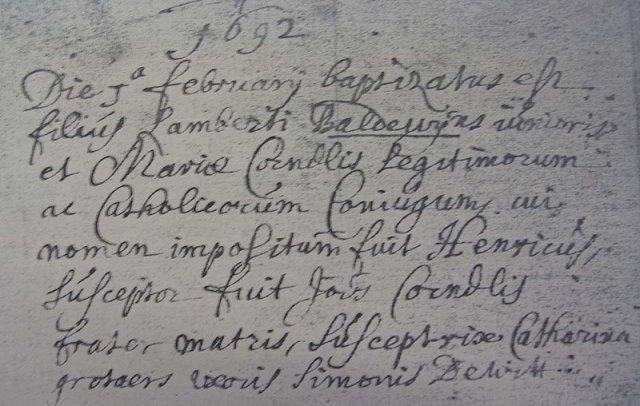 1692
Die 1ª february baptizatus est
filius Lamberti Baldewijns
et Mariæ Cornelis legitimorum
ac Catholicorum Coniugum, cui
nomen impositum fuit Henricus,
susceptor fuit Joes Cornelis
frater matris, susceptrix Catharina
grotaers uxoris Simonis Dewitt